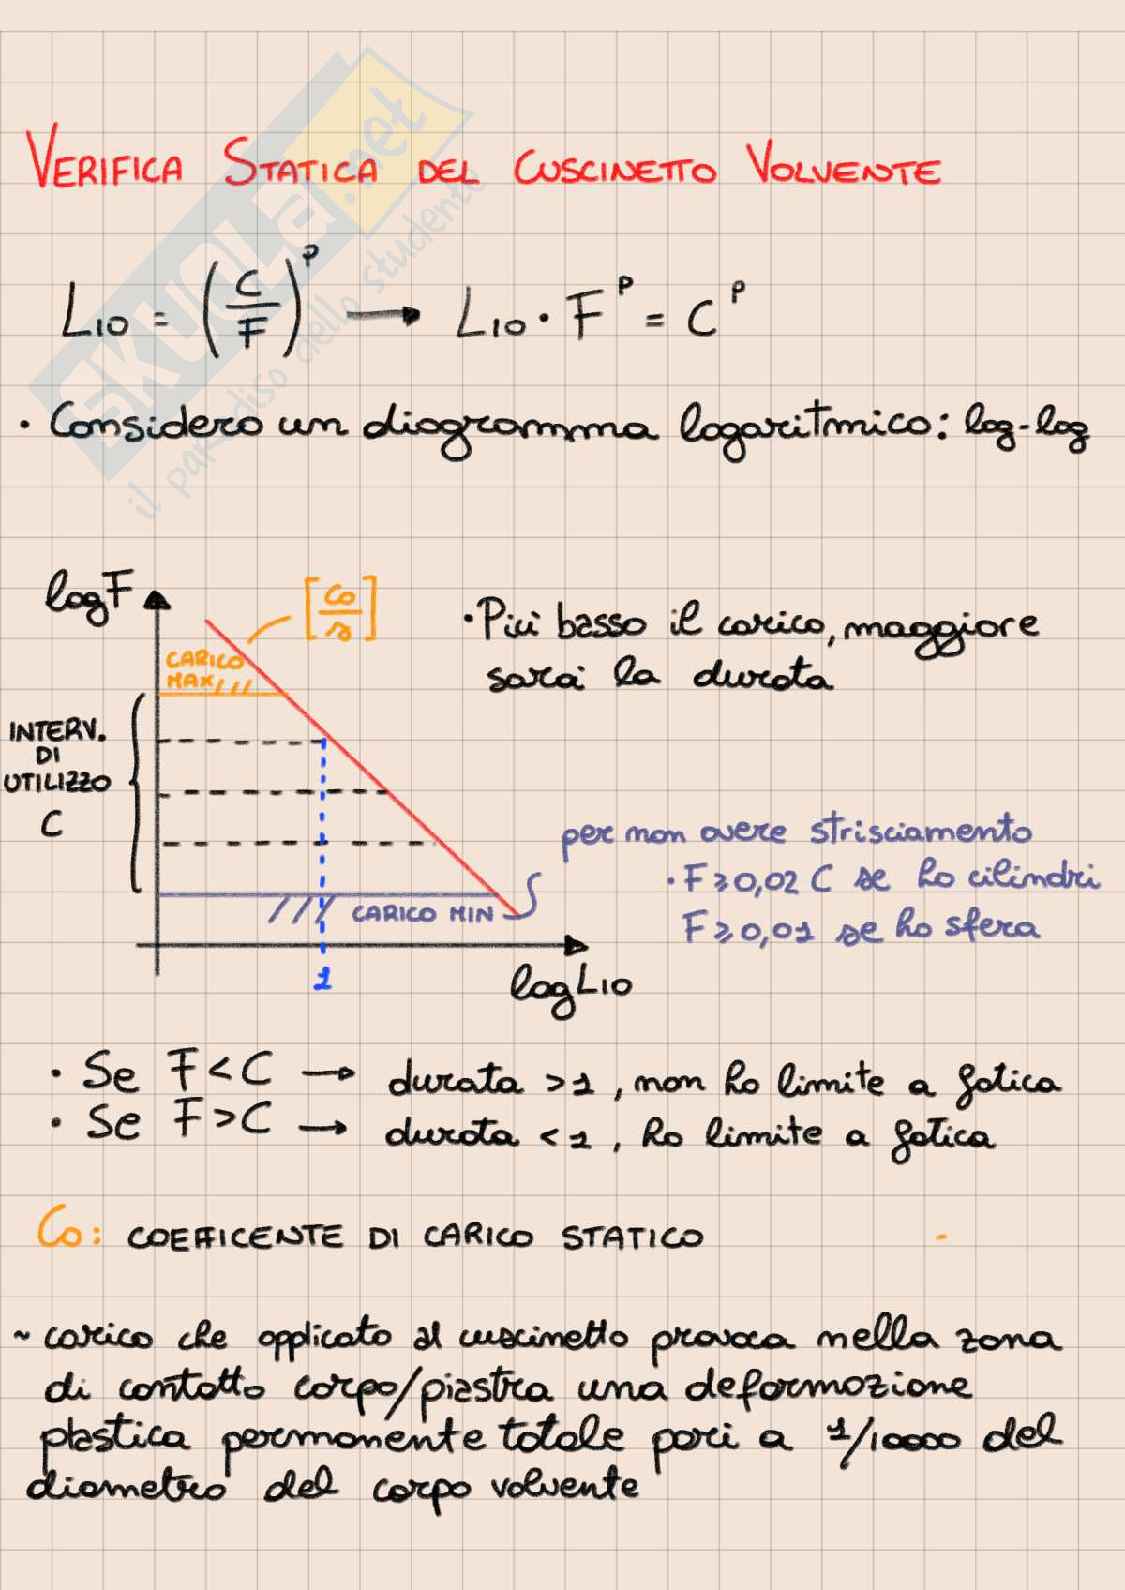 VERIFICA STATICA DEL CUSCINETTO VOLVENTE
L10 = (C/F)^p → L10 · F^p = C^p
· Considero un diagramma logaritmico: log-log
logF
[Co/s]
CARICO
MAX
INTERV.
DI
UTILIZZO
C
· Più basso il carico, maggiore
sarà la durata
per non avere strisciamento
· F ⩾ 0,02 C se ho cilindri
F ⩾ 0,01 se ho sfera
CARICO MIN
1
logL10
· Se F < C → durata > 1, non ho limite a fatica
· Se F > C → durata < 1, ho limite a fatica
Co: COEFFICENTE DI CARICO STATICO
~ carico che applicato al cuscinetto provoca nella zona
di contatto corpo/piastra una deformazione
plastica permanente totale pari a 1/10000 del
diametro del corpo volvente
SKUOLA.net
il paradiso dello studente